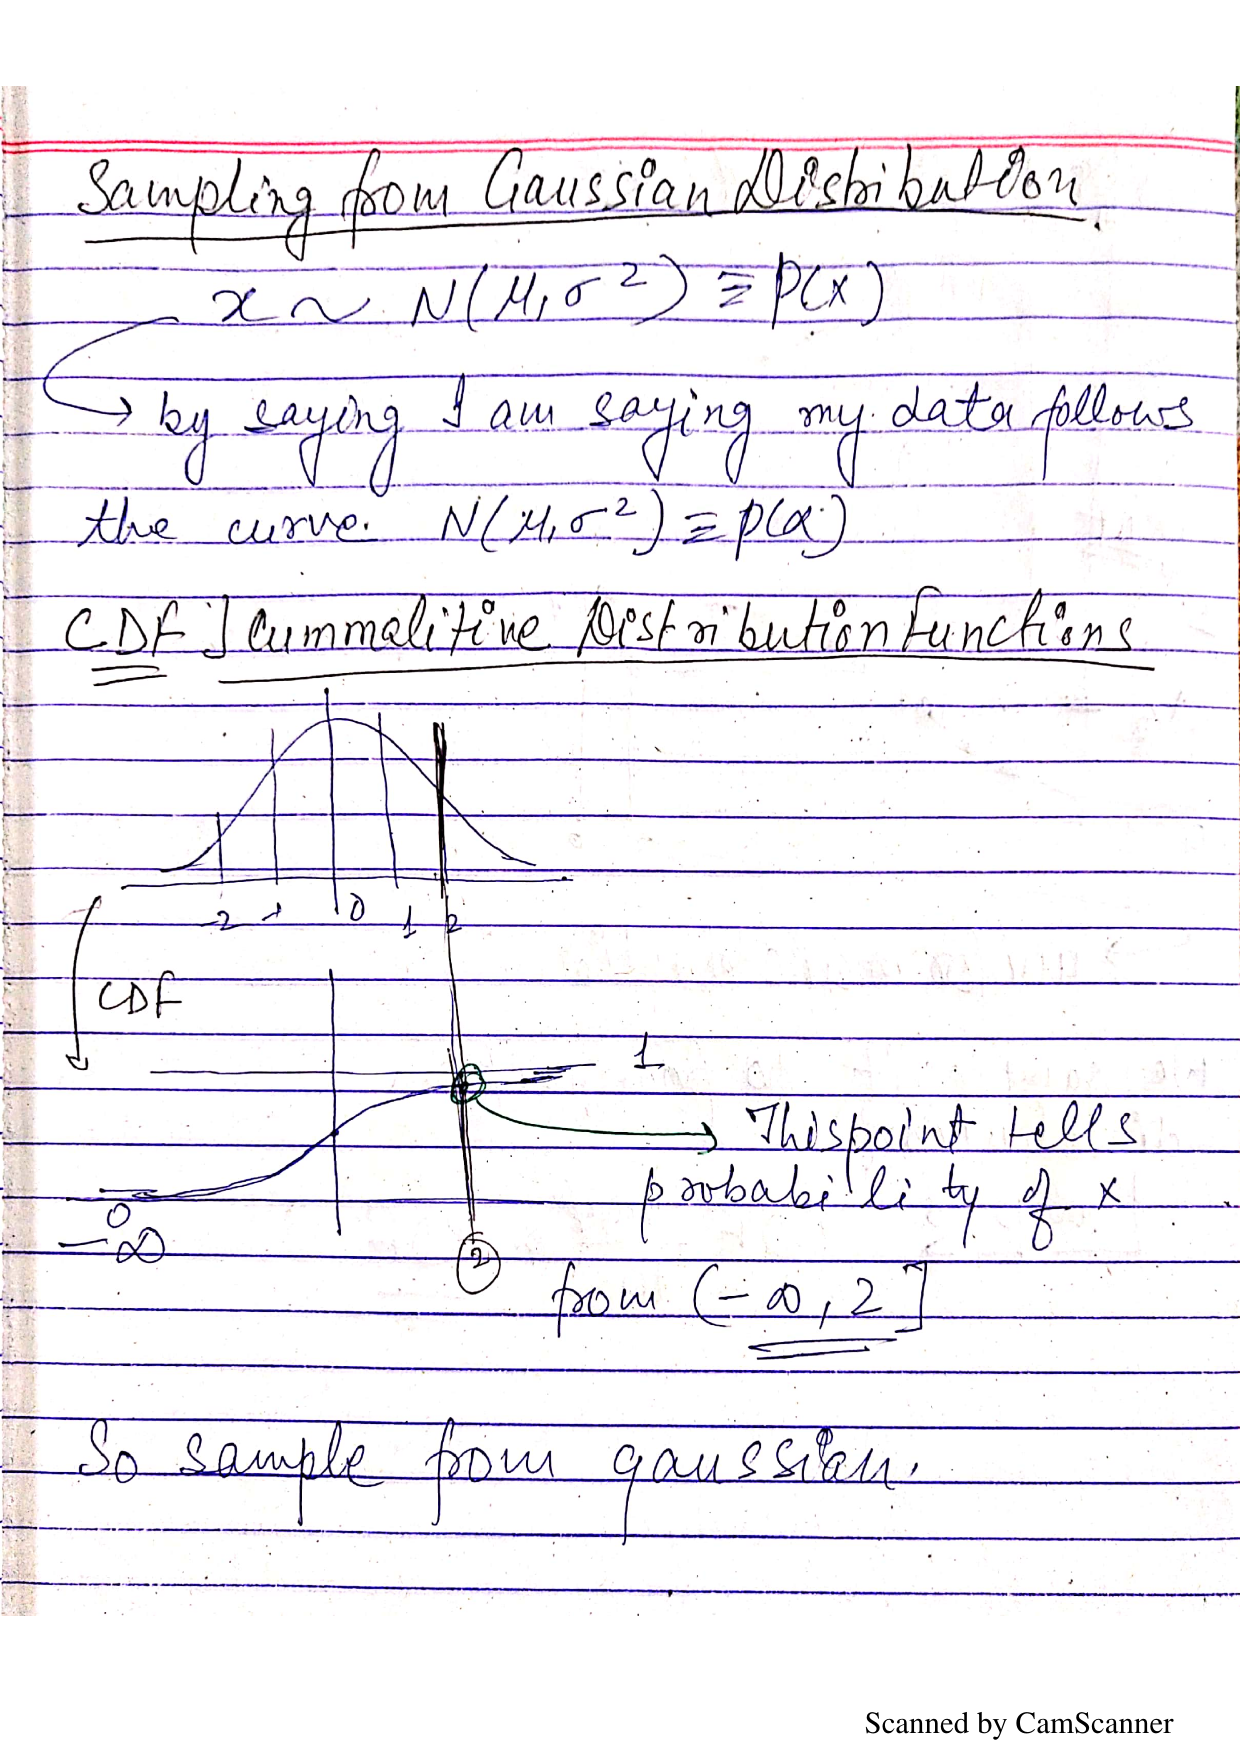 Sampling from Gaussian Distribution.
x ~ N(μ, σ²) ≡ P(x)
→ by saying I am saying my data follows
the curve. N(μ, σ²) ≡ p(x)
CDF ] Cummalitive Distribution Functions
-2 -1 0 1 2
CDF
1
This point tells
probability of x
0
-∞
2
from (-∞, 2]
So sample from gaussian.
Scanned by CamScanner